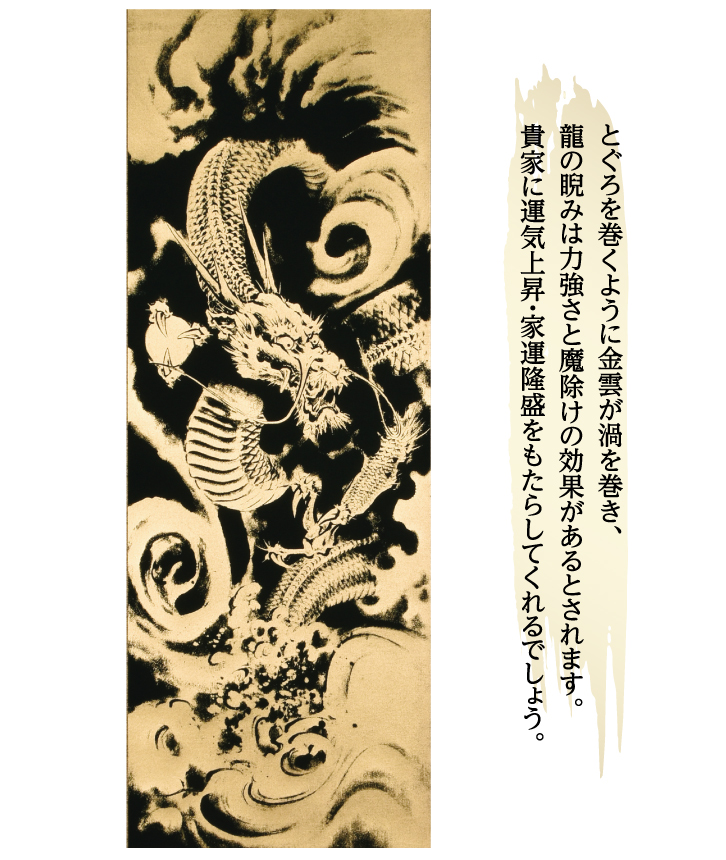 とぐろを巻くように金雲が渦を巻き、
龍の睨みは力強さと魔除けの効果があるとされます。
貴家に運気上昇・家運隆盛をもたらしてくれるでしょう。